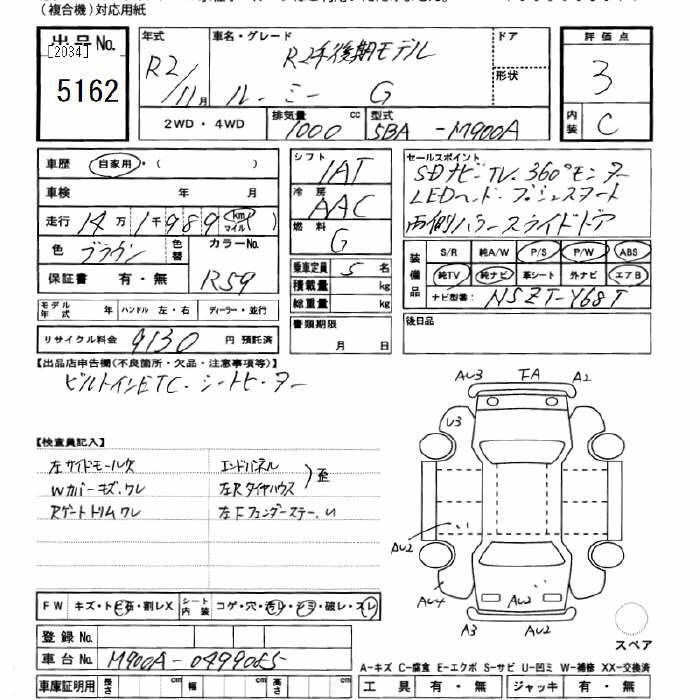 (複合機)対応用紙
出品No.
[2034]
5162
年式
R2/11月
車名・グレード
R2年後期モデル
ルーミー G
ドア
形状
2WD・4WD
排気量 1000 cc
型式 5BA-M900A
評価点
3
内装
C
車歴 自家用・( )
車検 年 月
走行 14万1千989 km マイル( )
色 ブラウン
色替
カラーNo.
R59
保証書 有・無
モデル年式 年
ハンドル 左・右
ディーラー・並行
リサイクル料金 9130 円 預託済
シフト
IAT
冷房
AAC
燃料
G
乗車定員 5 名
積載量 kg
総重量 kg
書類期限
月 日
セールスポイント
SDナビ・TV・360°モニター
LEDヘッド・プッシュスタート
両側パワースライドドア
装備品
S/R 純A/W P/S P/W ABS
純TV 純ナビ 革シート 外ナビ エアB
ナビ型番: NSZT-Y68T
後日品
【出品店申告欄(不良箇所・欠品・注意事項等)】
ビルトインETC・シートヒーター
【検査員記入】
左サイドモール欠
エンドパネル
Wカバーキズ・ワレ
左Rタイヤハウス
歪
Rゲートトリムワレ
左Fフェンダーステー
FW キズ・トビ石・割レX
シート内装 コゲ・穴・汚レ・シミ・破レ・スレ
登録No.
車台No. M900A-0499085
車庫証明用 長さ cm 幅 cm 高さ cm
AU3 FA A2
U3
AU2
AU4
AU2
A3 AU2
スペア
A-キズ C-腐食 E-エクボ S-サビ U-凹ミ W-補修 XX-交換済
工具 有・無 ジャッキ 有・無